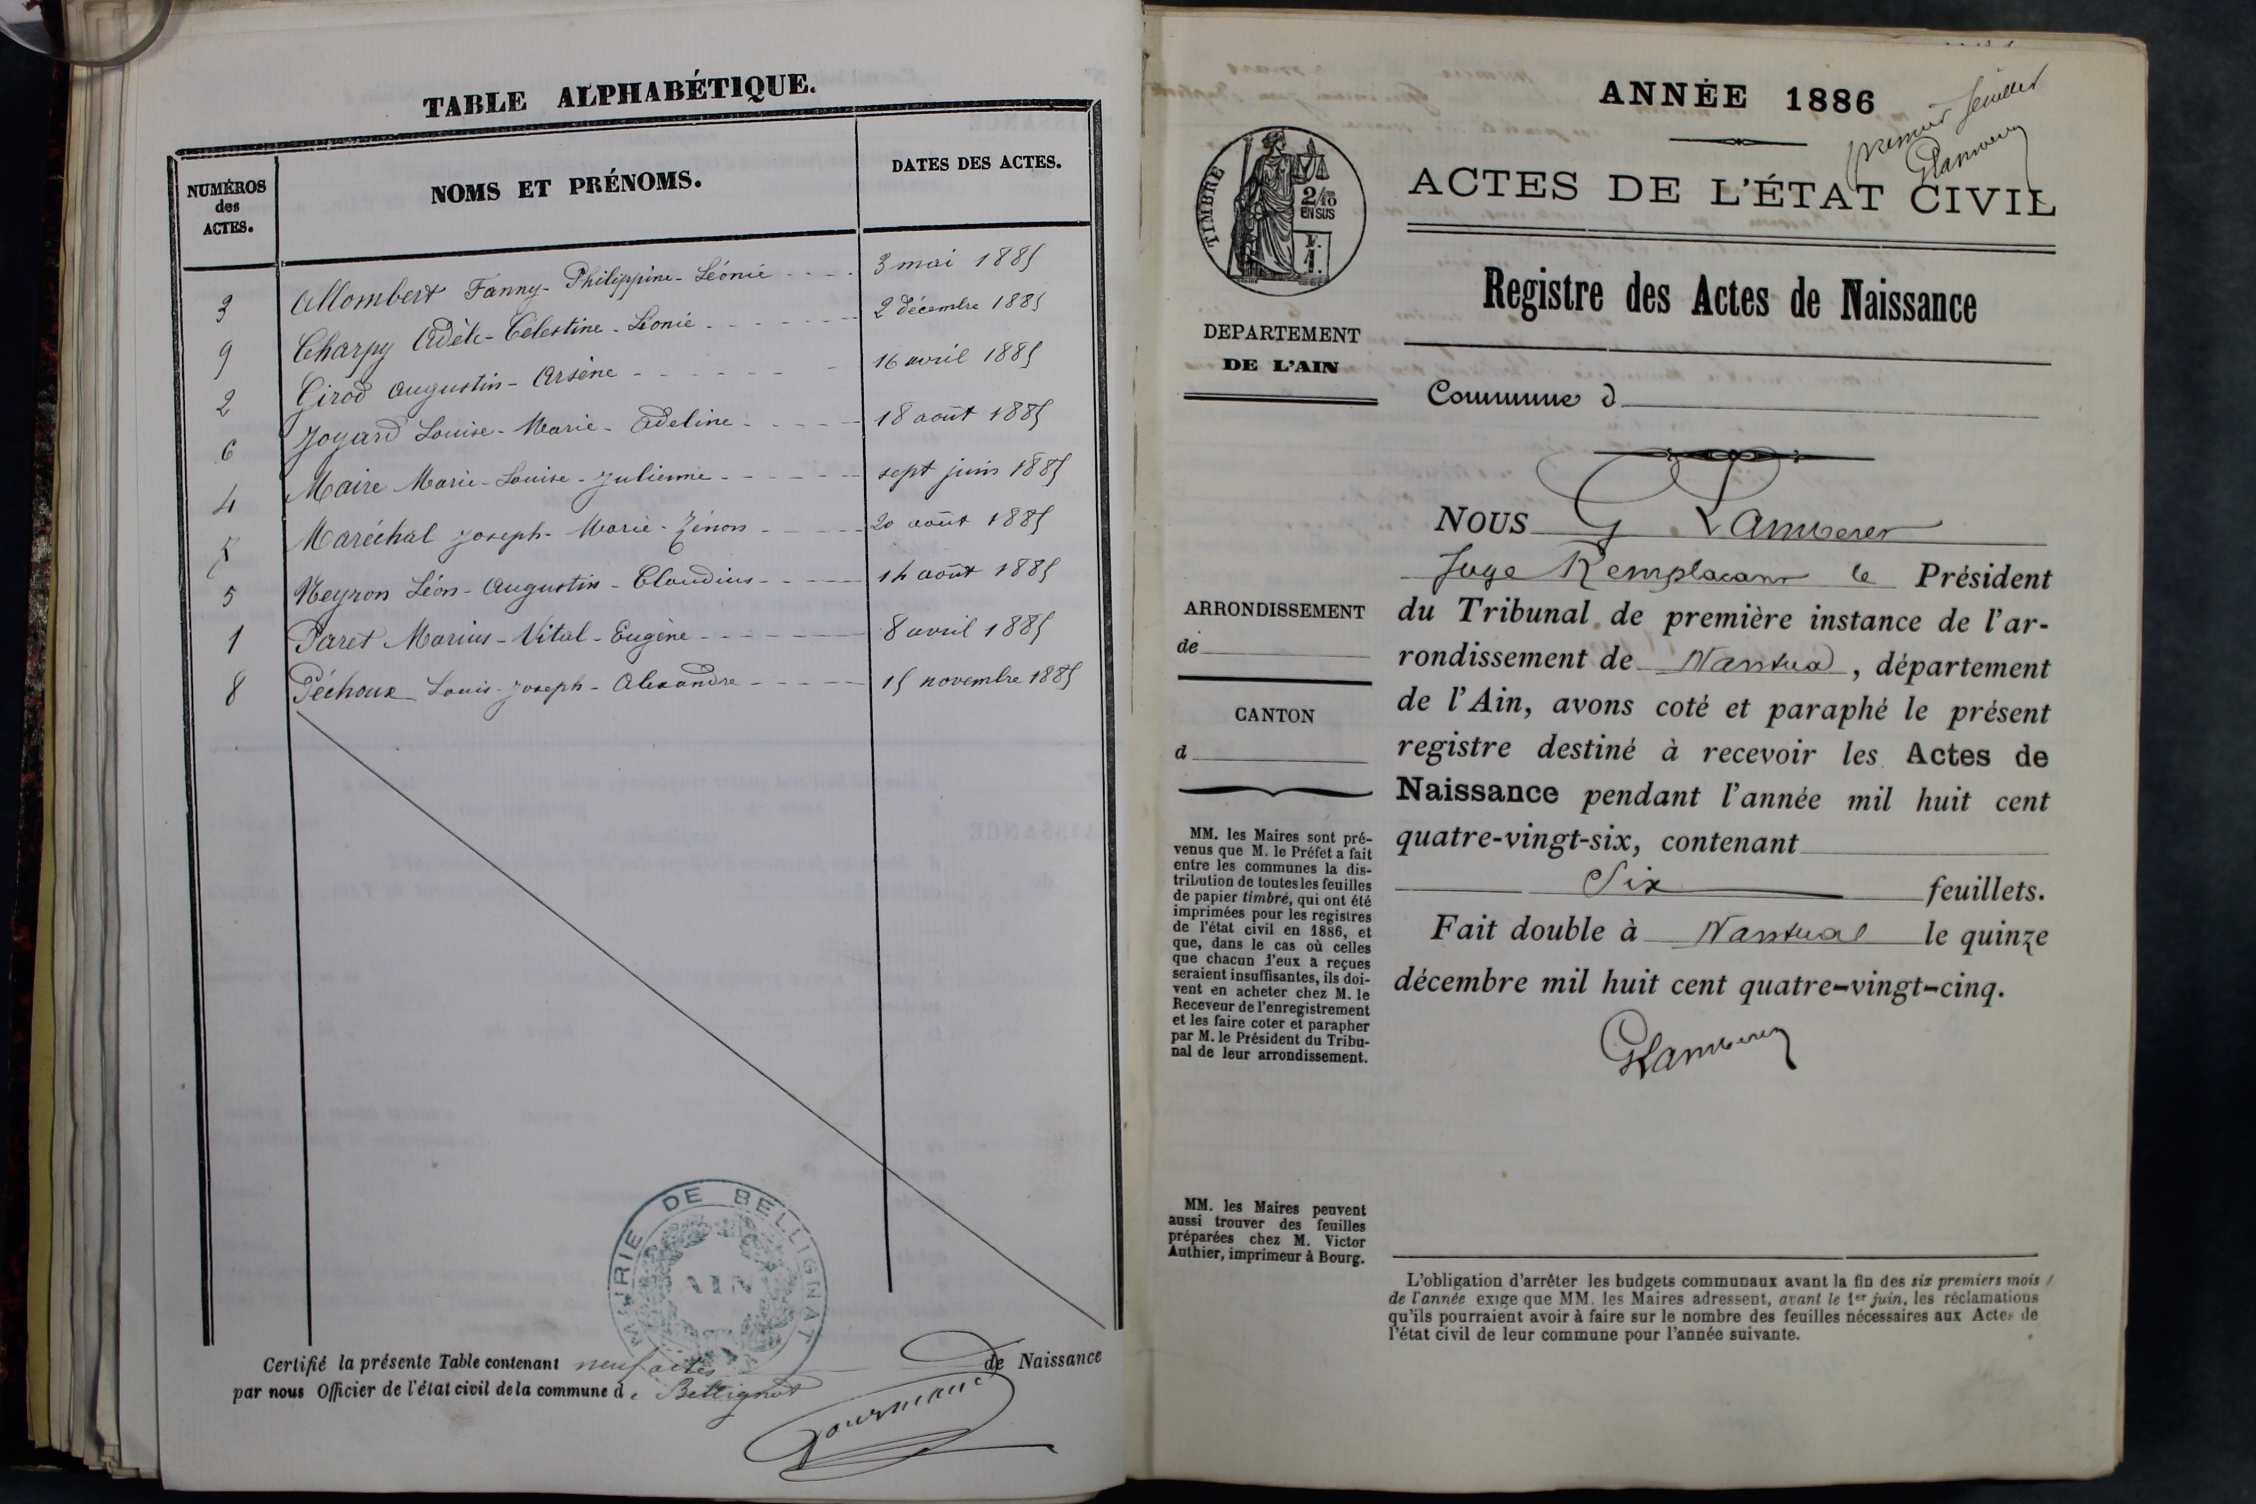 TABLE ALPHABÉTIQUE.
NUMÉROS
des
ACTES.
NOMS ET PRÉNOMS.
DATES DES ACTES.
3 Allombert Fanny-Philippine-Léonie 3 mai 1885
9 Charpy Adèle-Celestine-Léonie 2 décembre 1885
2 Girod Augustin-Arsène 16 avril 1885
6 Joyard Louise-Marie-Adeline 18 août 1885
4 Maire Marie-Louise-Julienne sept juin 1885
Maréchal Joseph-Marie-Zénon 20 août 1885
5 Neyron Léon-Augustin-Claudius 14 août 1885
1 Paret Marius-Vital-Eugène 8 avril 1885
8 Péchoux Louis-Joseph-Alexandre 15 novembre 1885
MAIRIE DE BELLIGNAT
AIN
Certifié la présente Table contenant neuf actes de Naissance
par nous Officier de l'état civil de la commune de Bellignat
Gourmand
ANNÉE 1886
premier feuillet
ACTES DE L'ÉTAT CIVIL
TIMBRE
2/10
EN SUS
Registre des Actes de Naissance
DEPARTEMENT
DE L'AIN
Commune d
NOUS G.
Juge Remplacant le Président
du Tribunal de première instance de l'ar-
rondissement de Nantua, département
de l'Ain, avons coté et paraphé le présent
registre destiné à recevoir les Actes de
Naissance pendant l'année mil huit cent
quatre-vingt-six, contenant
Six feuillets.
Fait double à Nantua le quinze
décembre mil huit cent quatre-vingt-cinq.
ARRONDISSEMENT
de
CANTON
d
MM. les Maires sont pré-
venus que M. le Préfet a fait
entre les communes la dis-
tribution de toutes les feuilles
de papier timbré, qui ont été
imprimées pour les registres
de l'état civil en 1886, et
que, dans le cas où celles
que chacun d'eux a reçues
seraient insuffisantes, ils doi-
vent en acheter chez M. le
Receveur de l'enregistrement
et les faire coter et parapher
par M. le Président du Tribu-
nal de leur arrondissement.
MM. les Maires peuvent
aussi trouver des feuilles
préparées chez M. Victor
Authier, imprimeur à Bourg.
L'obligation d'arrêter les budgets communaux avant la fin des six premiers mois
de l'année exige que MM. les Maires adressent, avant le 1er juin, les réclamations
qu'ils pourraient avoir à faire sur le nombre des feuilles nécessaires aux Actes de
l'état civil de leur commune pour l'année suivante.